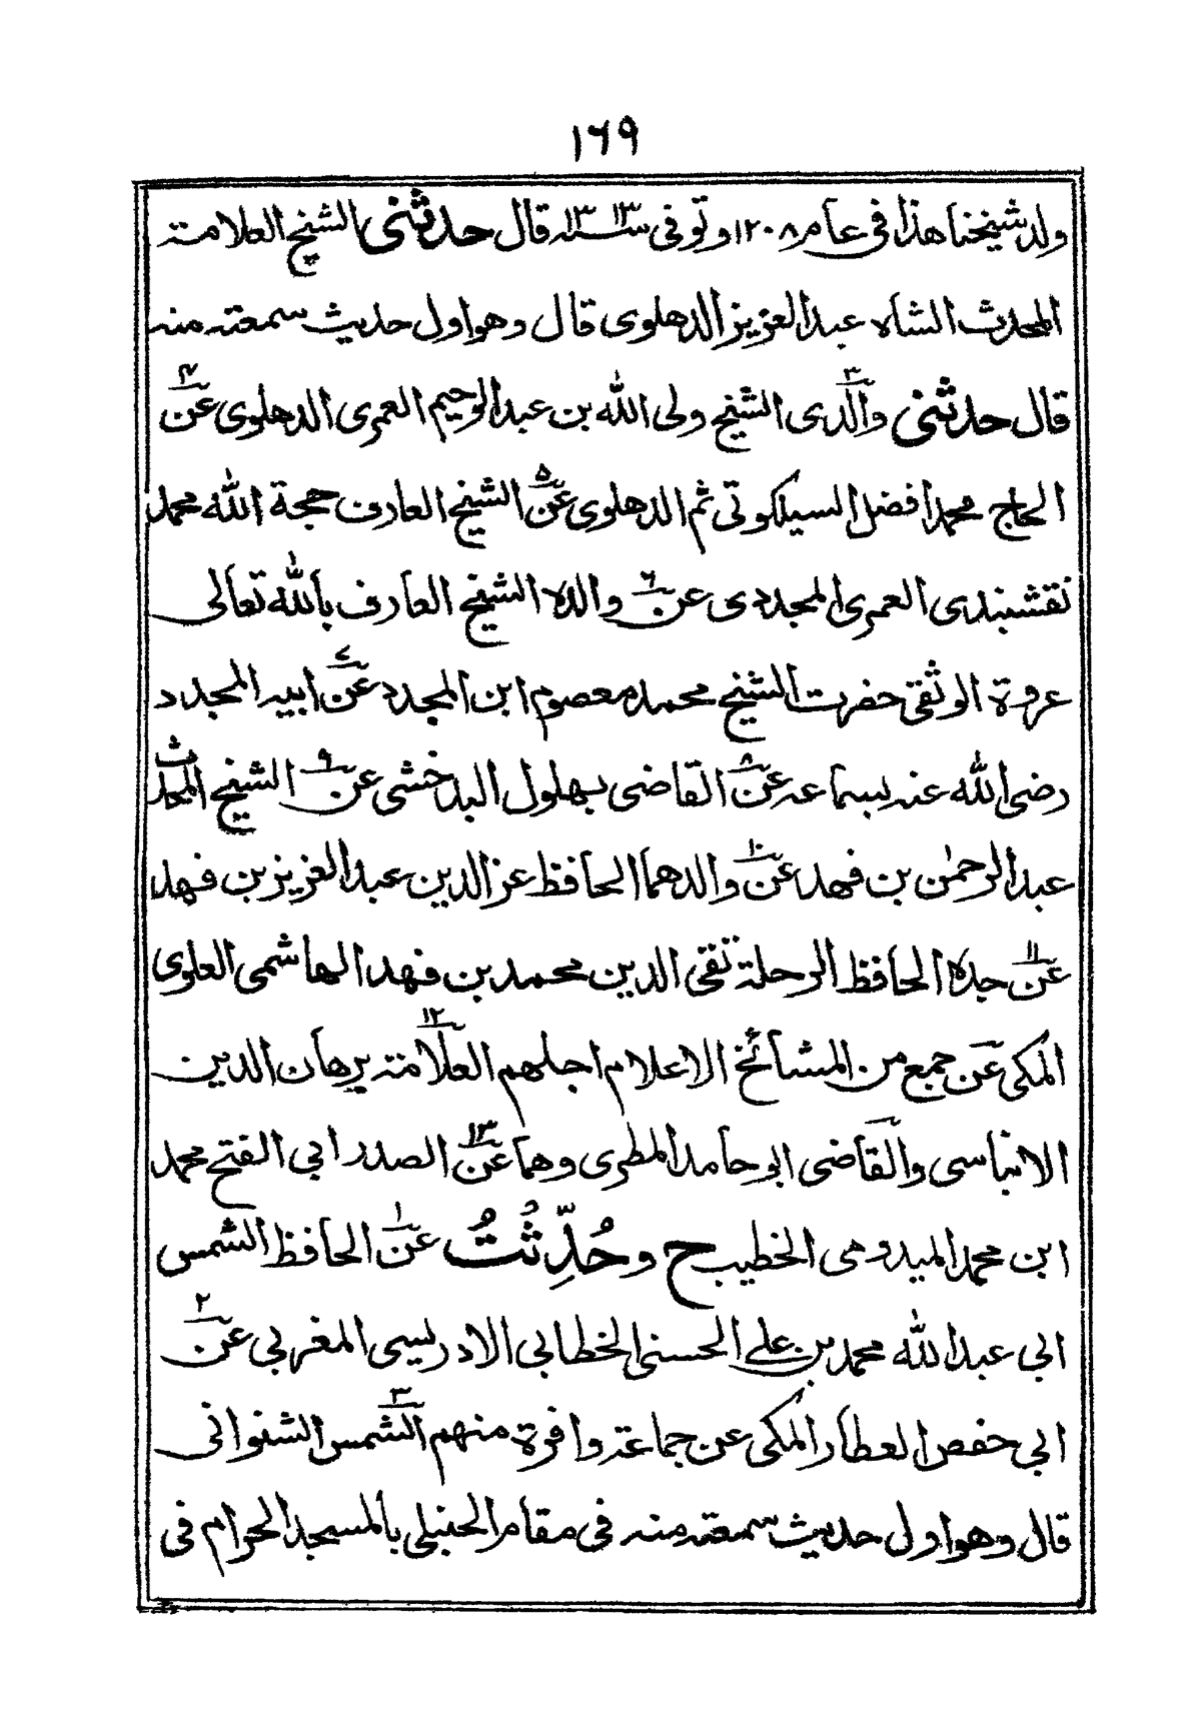 ١٦٩
ولد شيخنا هذا في عام ١٢٠٨ وتوفى سنه ١٣١٣ قال حدثنى الشيخ العلامة
المحدث الشاه عبد العزيز الدهلوى قال وهو اول حديث سمعته منه
قال حدثنى والدى ٣ الشيخ ولى الله بن عبد الرحيم العمرى الدهلوى عن ٤
الحاج محمد افضل السيلكوتى ثم الدهلوى عن ٥ الشيخ العارف حجة الله محمد
نقشبندى العمرى المجددى عن ٦ والده الشيخ العارف بالله تعالى
عروة الوثقى حضرت الشيخ محمد معصوم ابن المجدد عن ٧ ابيه المجدد
رضى الله عنه بسماعه عن ٨ القاضى بهلول البدخشى عن ٩ الشيخ المحدث
عبد الرحمٰن بن فهد عن ١٠ والدهما الحافظ عز الدين عبد العزيز بن فهد
عن ١١ جده الحافظ الرحلة تقى الدين محمد بن فهد الهاشمى العلوى
المكى عن جمع من المشائخ الاعلام اجلهم العلامة ١٢ برهان الدين
الانباسى والقاضى ابو حامد المطرى وهما عن ١٣ الصدر ابي الفتح محمد
ابن محمد الميدومى الخطيب ح وحُدِّثْتُ عن ١ الحافظ الشمس
ابى عبد الله محمد بن على الحسنى الخطابى الادريسى المغربي عن ٢
ابي حفص العطار المكى عن جماعة وافرة منهم الشمس ٣ الشنوانى
قال وهو اول حديث سمعته منه في مقام الحنبلى بالمسجد الحرام فى